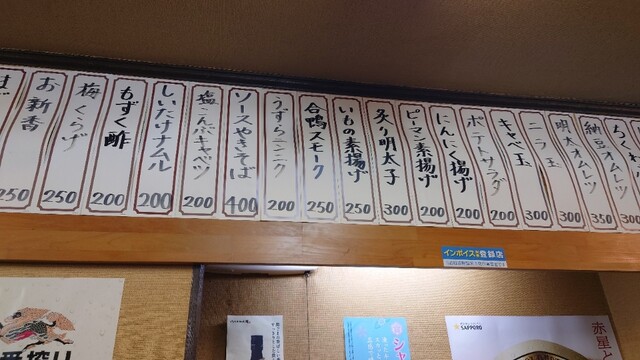 お新香
250
梅くらげ
250
もずく酢
200
しいたけナムル
200
塩こんぶキャベツ
200
ソースやきそば
400
うずらニンニク
200
合鴨スモーク
250
いもの素揚げ
250
炙り明太子
300
ピーマン素揚げ
200
にんにく揚げ
200
ポテトサラダ
200
キャベ玉
300
ニラ玉
300
明太オムレツ
350
納豆オムレツ
300
インボイス
登録店
一番搾り
SAPPORO
赤星